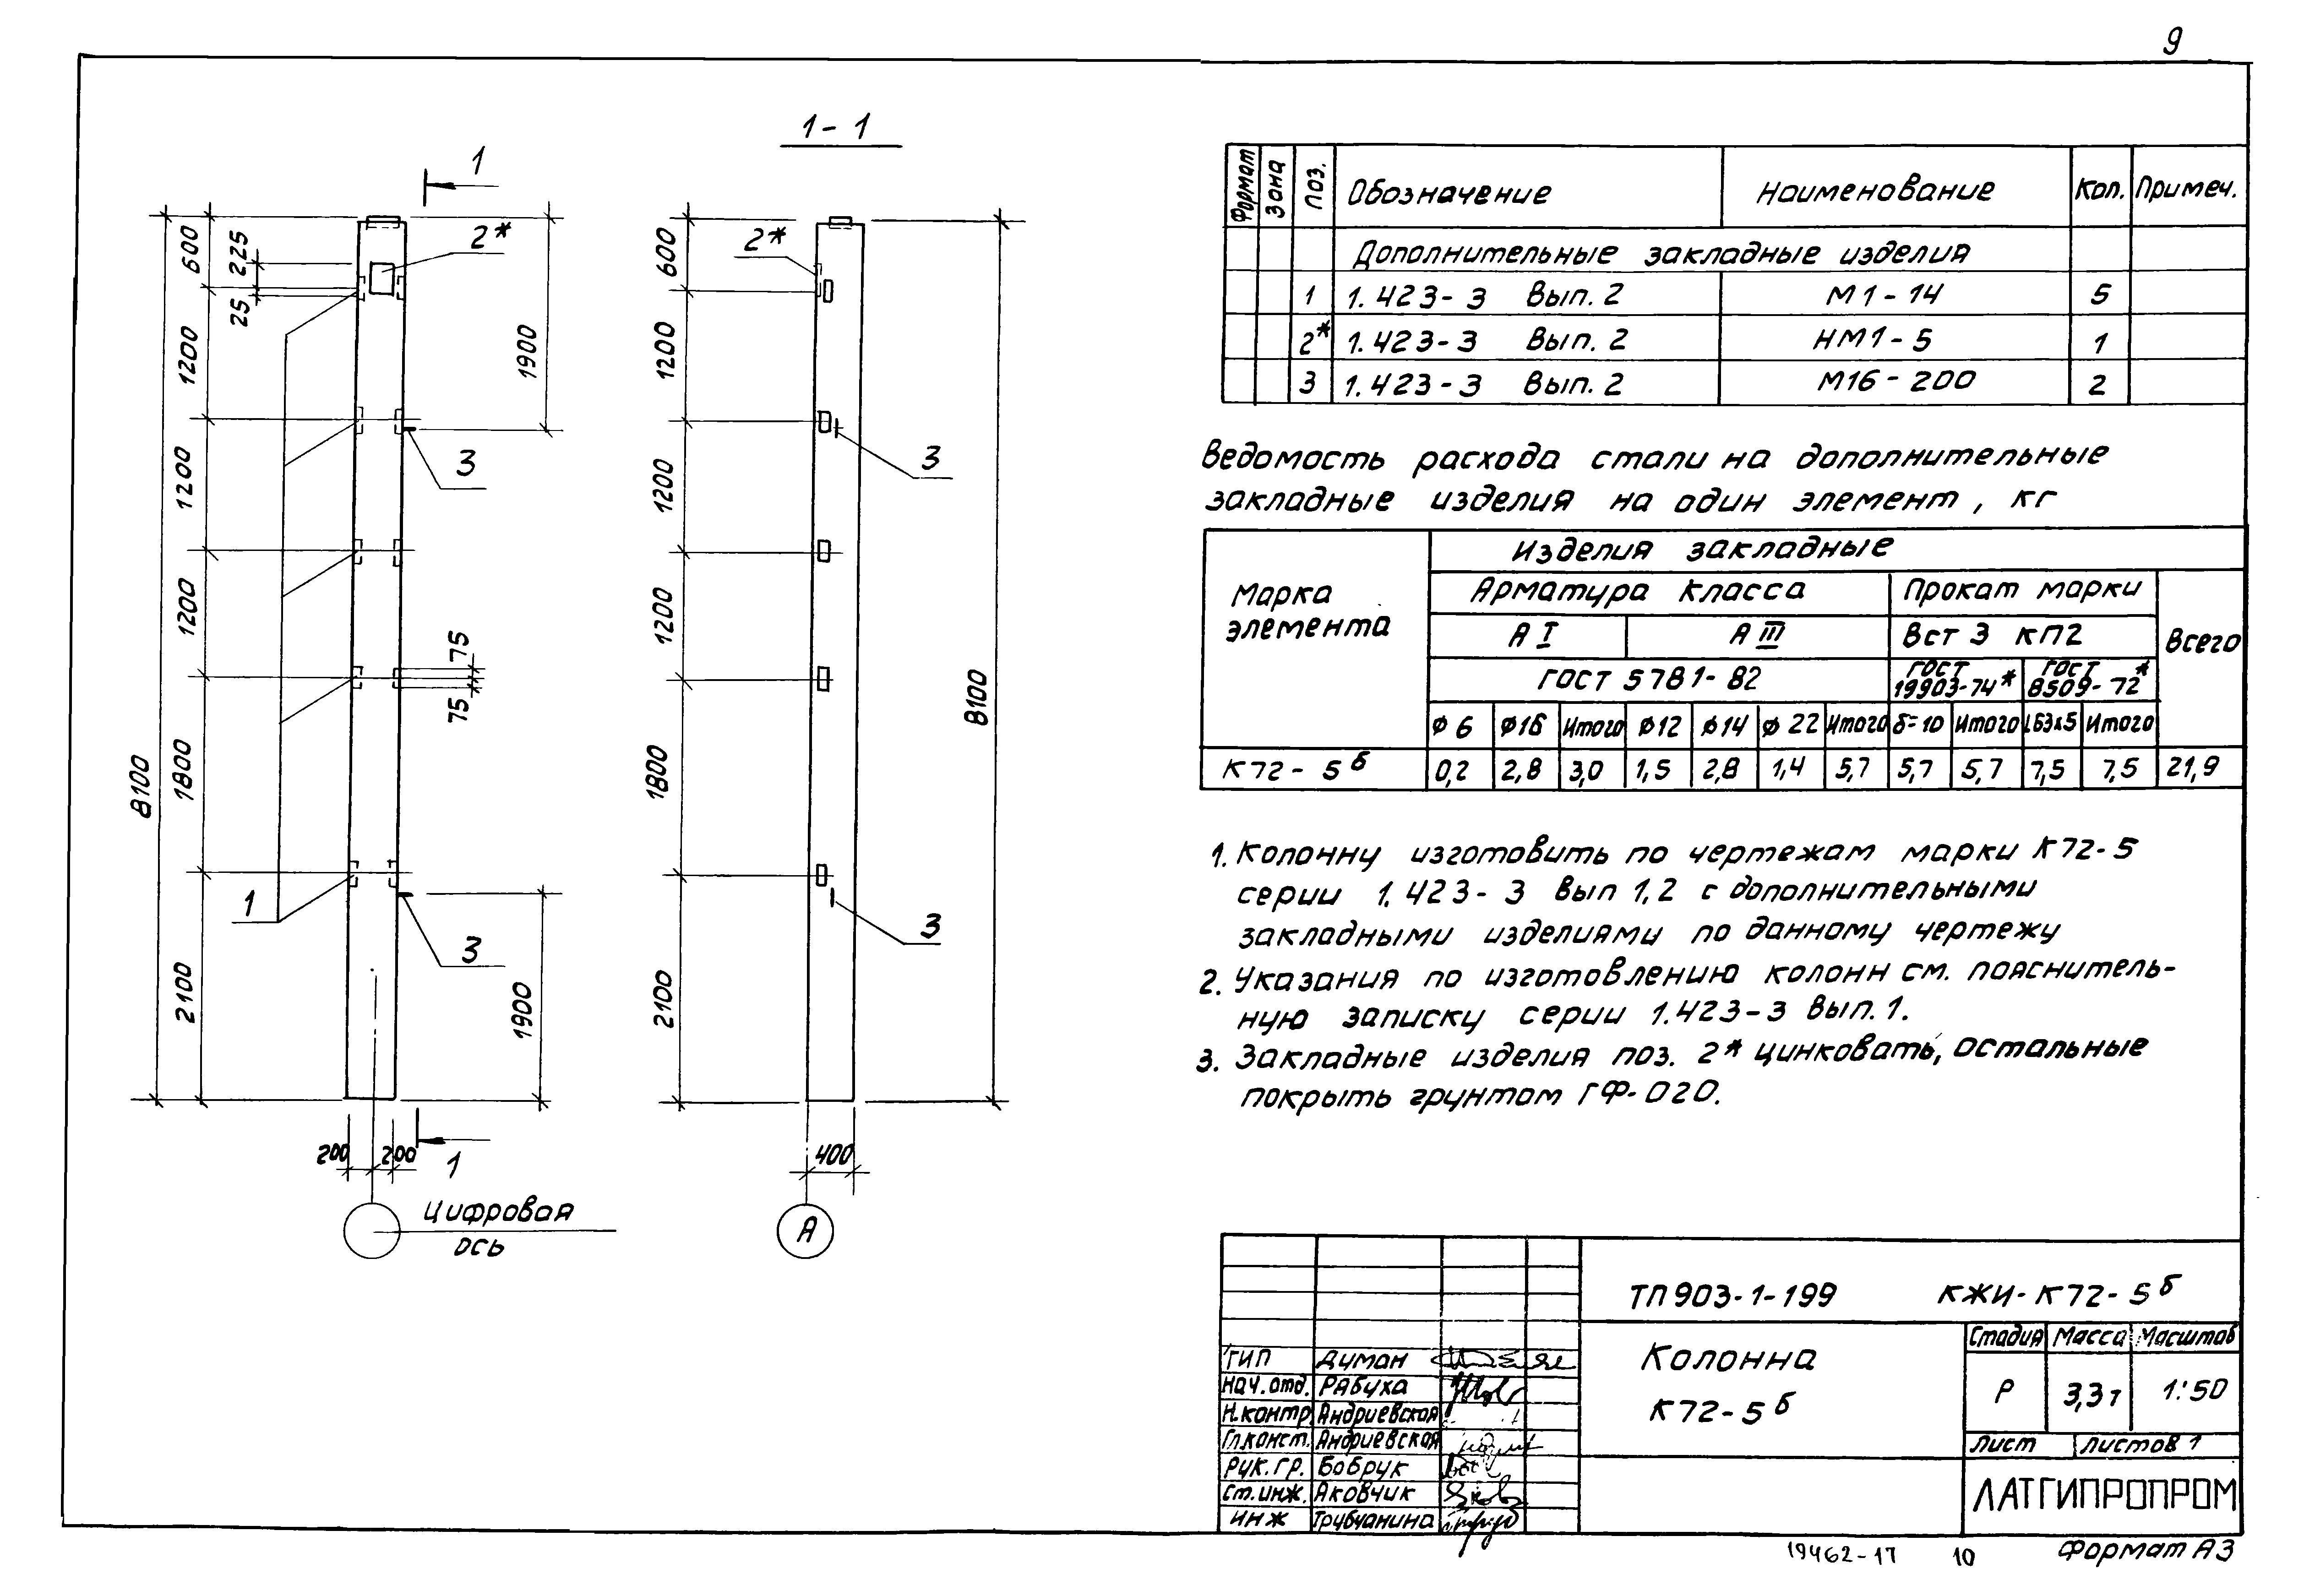 9
1
1-1
2*
2*
600
225
25
1200
1900
1200
3
1200
75
75
1800
8100
1
3
2100
1900
200 200
1
Цифровая
ось
600
1200
1200
3
1200
1800
8100
3
2100
400
А
Формат Зона Поз. Обозначение Наименование Кол. Примеч.
Дополнительные закладные изделия
1 1.423-3 Вып. 2 М1-14 5
2* 1.423-3 Вып. 2 НМ1-5 1
3 1.423-3 Вып. 2 М16-200 2
Ведомость расхода стали на дополнительные
закладные изделия на один элемент, кг
Марка элемента
Изделия закладные
Арматура класса Прокат марки
А I А III Вст 3 кп2 Всего
ГОСТ 5781-82 ГОСТ 19903-74* ГОСТ 8509-72*
ф6 ф16 Итого ф12 ф14 ф22 Итого δ=10 Итого L63х5 Итого
К72-5б 0,2 2,8 3,0 1,5 2,8 1,4 5,7 5,7 5,7 7,5 7,5 21,9
1. Колонну изготовить по чертежам марки К72-5
серии 1.423-3 вып 1,2 с дополнительными
закладными изделиями по данному чертежу
2. Указания по изготовлению колонн см. пояснитель-
ную записку серии 1.423-3 вып. 1.
3. Закладные изделия поз. 2* цинковать, остальные
покрыть грунтом ГФ-020.
ТП903-1-199 КЖИ-К72-5б
Колонна
К72-5б
Стадия Масса Масштаб
Р 3,3т 1:50
Лист Листов 1
ЛАТГИПРОПРОМ
ГИП Думан
Нач.отд. Рабуха
Н.контр Андриевская
Гл.конст. Андриевская
Рук.гр. Бобрук
Ст.инж. Яковчик
Инж Трубчанина
19462-17 10 Формат А3